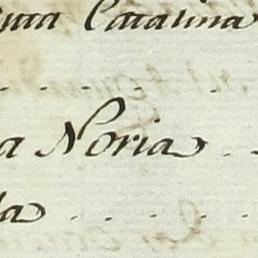 Catalina
. . . . .
a Noria . .
la . . . . .